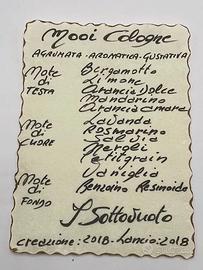 Mooi Cologne
AGRUMATA - AROMATICA - GUSTATIVA
Note di TESTA
Bergamotto
Limone
Arancia Dolce
Mandarino
Arancia amara
Note di CUORE
Lavanda
Rosmarino
Salvia
Neroli
Petitgrain
Note di FONDO
Vaniglia
Benzoino Resinoide
Sottovuoto
creazione: 2018 - Lancio: 2018